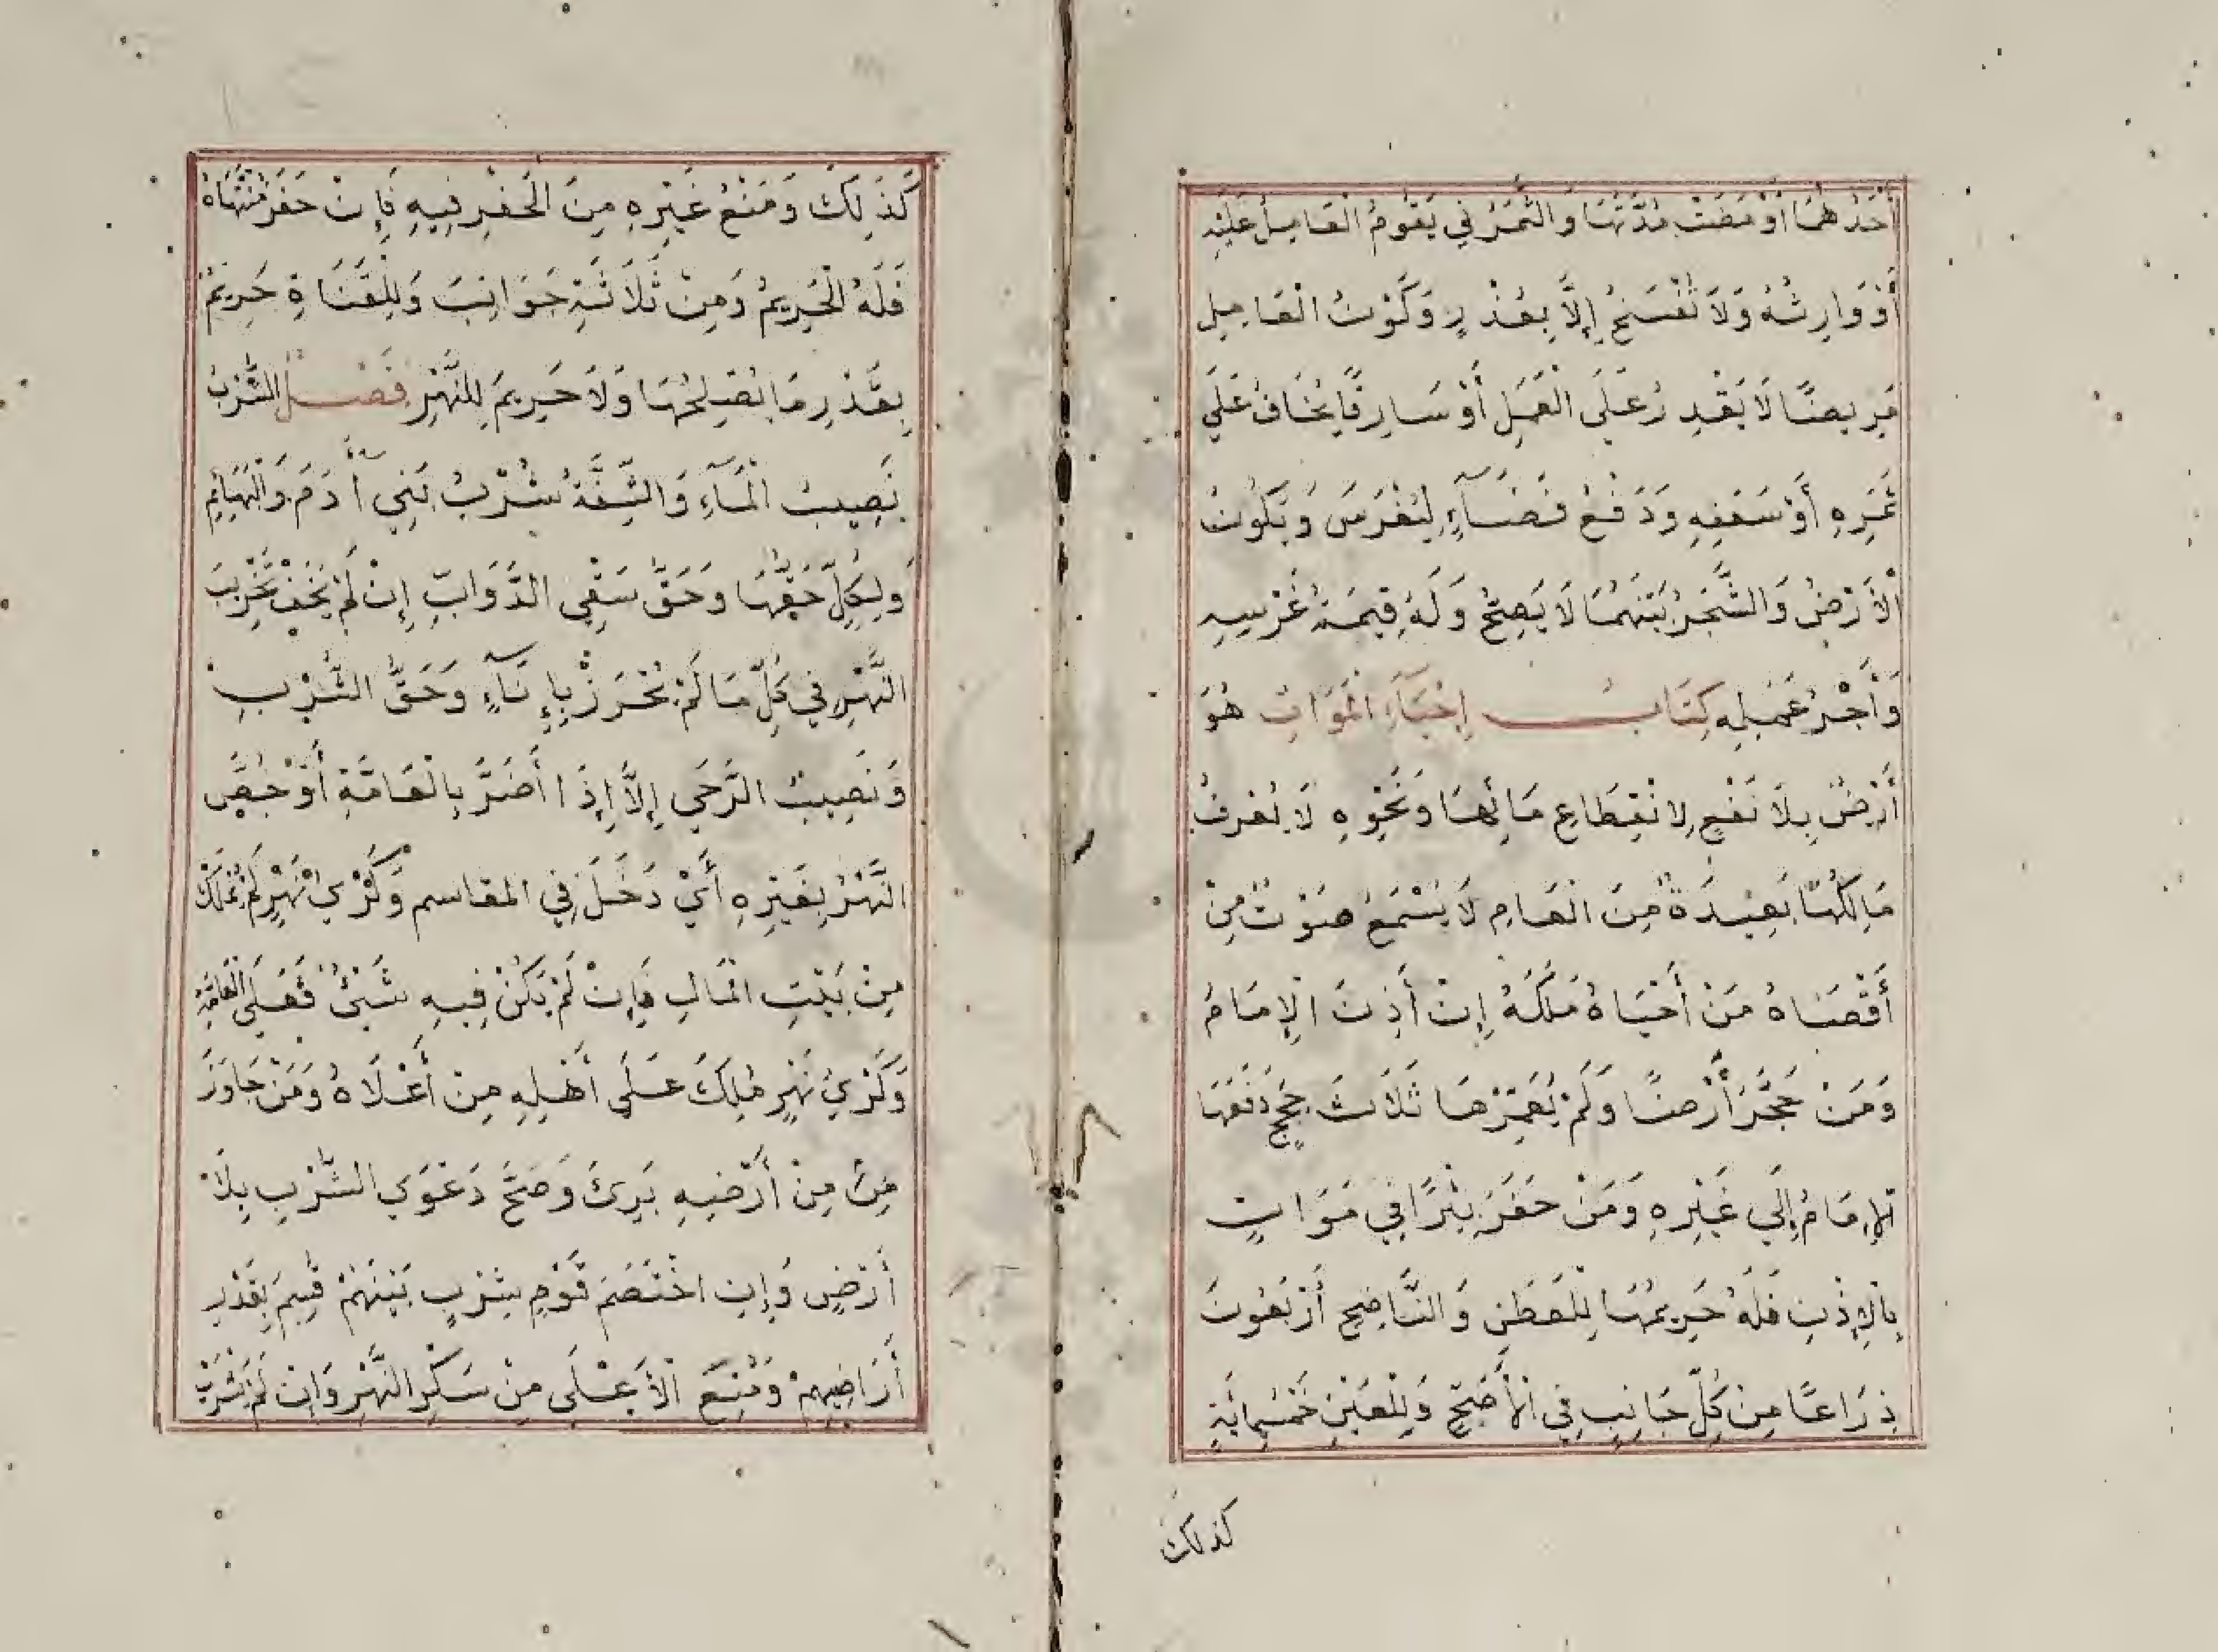 أَحَدُهُمَا أَوْ مَضَتْ مُدَّتُهَا وَالثَّمَرُ فِي يَقُومُ الْعَامِلُ عَلَيْهِ
أَوْ وَارِثُهُ وَلَا تُفْسَخُ إِلَّا بِعُذْرٍ وَكَوْنُ الْعَامِلِ
مَرِيضًا لَا يَقْدِرُ عَلَى الْعَمَلِ أَوْ سَارِقًا يُخَافُ عَلَى
ثَمَرِهِ أَوْ سَعَفِهِ وَدَفْعُ فَضَآءٍ لِيُغْرَسَ وَيَكُونَ
الْأَرْضُ وَالشَّجَرُ بَيْنَهُمَا لَا يَصِحُّ وَلَهُ قِيمَةُ غَرْسِهِ
وَأَجْرُ عَمَلِهِ كِتَابُ إِحْيَآءِ الْمَوَاتِ هُوَ
أَرْضٌ بِلَا نَفْعٍ لِانْقِطَاعِ مَائِهَا وَنَحْوِهِ لَا يُعْرَفُ
مَالِكُهَا بَعِيدَةٌ مِنَ الْعَامِرِ لَا يُسْمَعُ صَوْتٌ مِنْ
أَقْصَاهُ مَنْ أَحْيَاهُ مَلَكَهُ إِنْ أَذِنَ الْإِمَامُ
وَمَنْ حَجَّرَ أَرْضًا وَلَمْ يُعَمِّرْهَا ثَلَاثَ حِجَجٍ دَفَعَهَا
الْإِمَامُ إِلَى غَيْرِهِ وَمَنْ حَفَرَ بِئْرًا فِي مَوَاتٍ
بِالْإِذْنِ فَلَهُ حَرِيمُهَا لِلْعَطَنِ وَالنَّاضِحِ أَرْبَعُونَ
ذِرَاعًا مِنْ كُلِّ جَانِبٍ فِي الْأَصَحِّ وَلِلْعَيْنِ خَمْسُمِائَةٍ
كذلك
كَذَلِكَ وَمَنْعُ غَيْرِهِ مِنَ الْحَفْرِ فِيهِ فَإِنْ حَفَرَ مُنْتَهَاهُ
فَلَهُ الْحَرِيمُ وَمِنْ ثَلَاثَةِ جَوَانِبَ وَلِلْقَنَاةِ حَرِيمٌ
بِقَدْرِ مَا يُصْلِحُهَا وَلَا حَرِيمَ لِلنَّهْرِ فَصْلٌ الشَّرْبُ
نَصِيبُ الْمَآءِ وَالشَّفَةُ شُرْبُ بَنِي آدَمَ وَالْبَهَائِمِ
وَلِكُلٍّ حَقُّهَا وَحَقُّ سَقْيِ الدَّوَابِّ إِنْ لَمْ يَخَفْ تَخْرِيبَ
النَّهْرِ فِي كُلِّ مَا لَمْ يُحْرَزْ بِإِنَآءٍ وَحَقُّ الشُّرْبِ
وَنَصِيبُ الرَّحَى إِلَّا إِذَا أَضَرَّ بِالْعَامَّةِ أَوْ خُصَّ
النَّهْرُ بِغَيْرِهِ أَيْ دَخَلَ فِي المقاسم وَكَرْيُ نَهْرٍ لَمْ يُمْلَكْ
مِنْ بَيْتِ الْمَالِ فَإِنْ لَمْ يَكُنْ فِيهِ شَيْئٌ فَعَلَى الْعَامَّةِ
وَكَرْيُ نَهْرٍ مُلِكَ عَلَى أَهْلِهِ مِنْ أَعْلَاهُ وَمَنْ جَاوَزَ
مِنْ مِنْ أَرْضِهِ بَرِئَ وَصَحَّ دَعْوَى الشِّرْبِ بِلَا
أَرْضٍ وَإِنِ اخْتَصَمَ قَوْمٌ بِشِرْبٍ بَيْنَهُمْ قُسِمَ بِقَدْرِ
أَرَاضِيهِمْ وَمُنِعَ الْأَعْلَى مِنْ سَكْرِ النَّهْرِ وَإِنْ لَمْ يَشْرَبْ